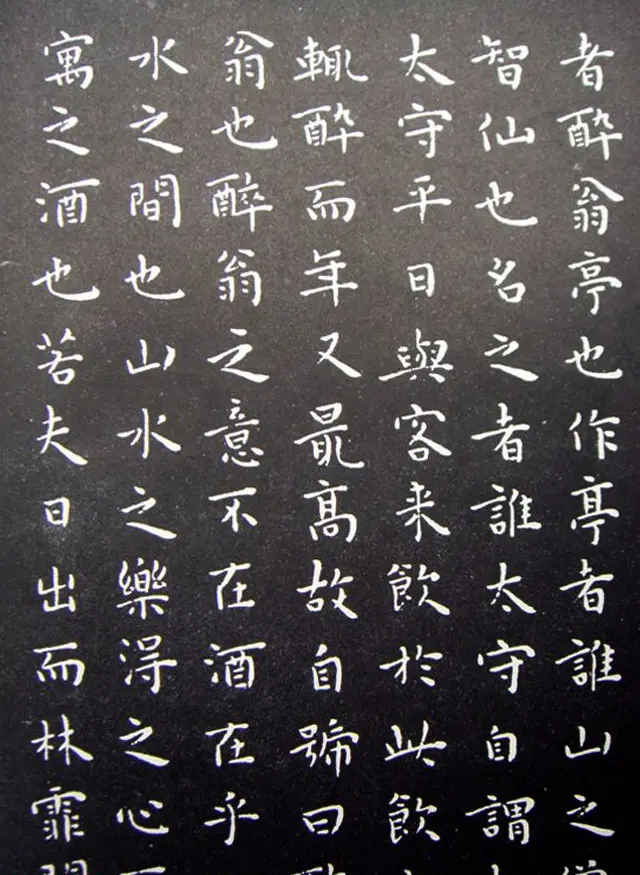 者酔翁亭也作亭者誰山之
智仙也名之者誰太守自謂
太守平日與客来飲於此飲
輙酔而年又最髙故自號曰
翁也醉翁之意不在酒在乎
水之間也山水之樂得之心
寓之酒也若夫日出而林霏